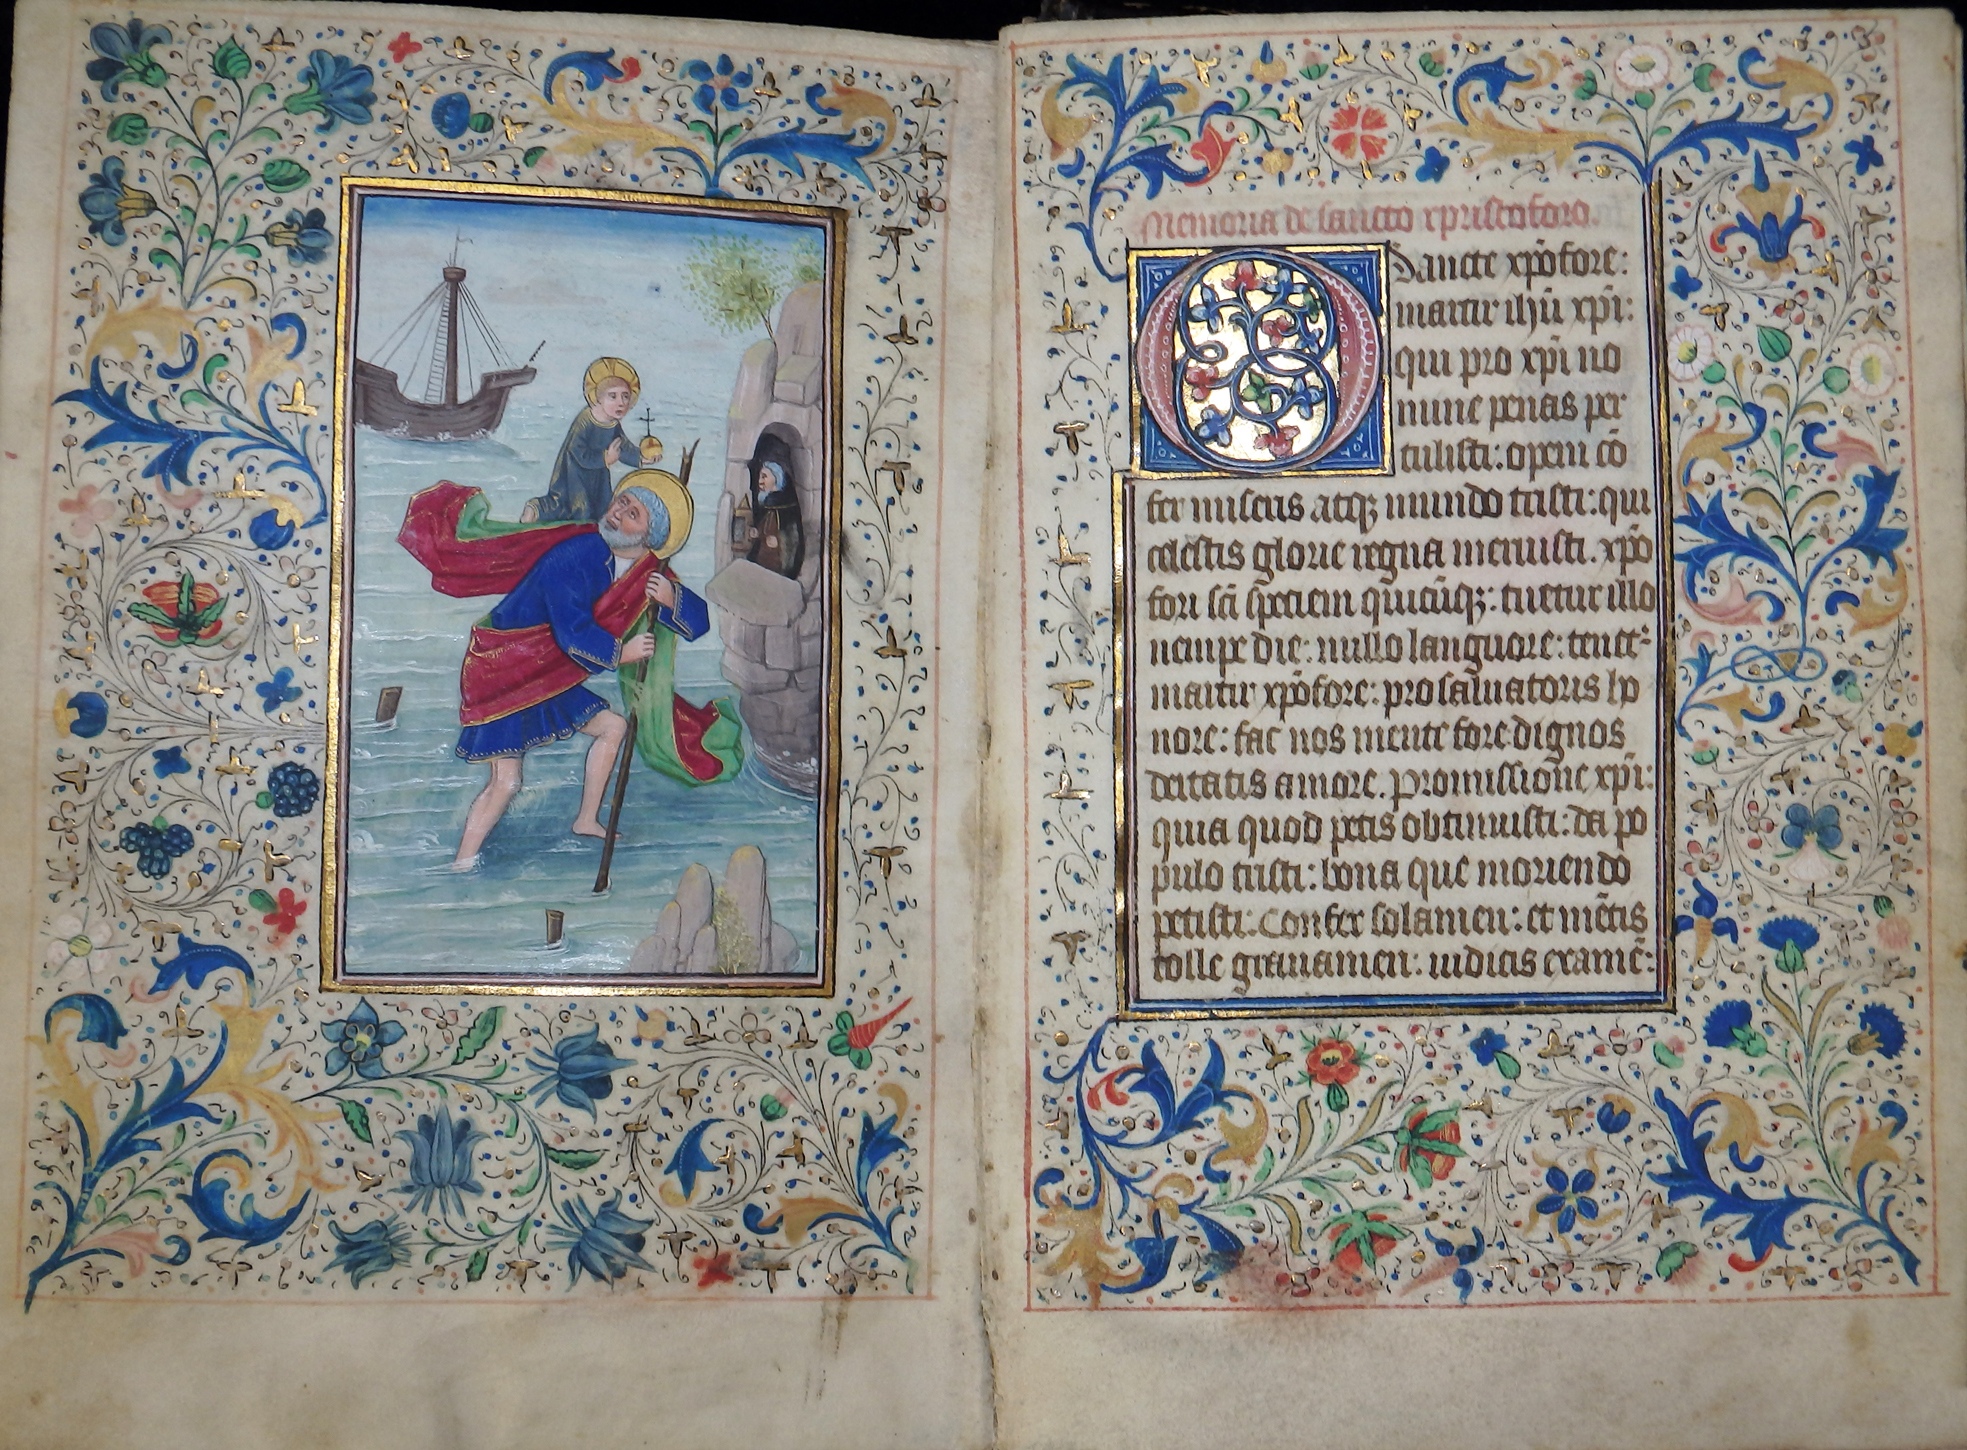 Memoria de sancto xpristoforo.
O Sancte xpõfore:
martir ihũ xp̃i:
qui pro xp̃i no
mine penas per
tulisti: opem cõ
fer miseris atqꝫ mundo tristi: qui
celestis glorie regna meruisti. xpo
fori sc̃i speciem quicũqꝫ: tuetur illo
nempe die: nullo languore: tenet᷑
martir xp̃ofore: pro saluatoris ho
nore: fac nos mente fore dignos
deitatis amore. Promissione xp̃i:
quia quod petis obtinuisti: da po
pulo tristi: bona que moriendo
petisti: Confer solamen: et mẽtis
tolle grauamen: iudicis examẽ: